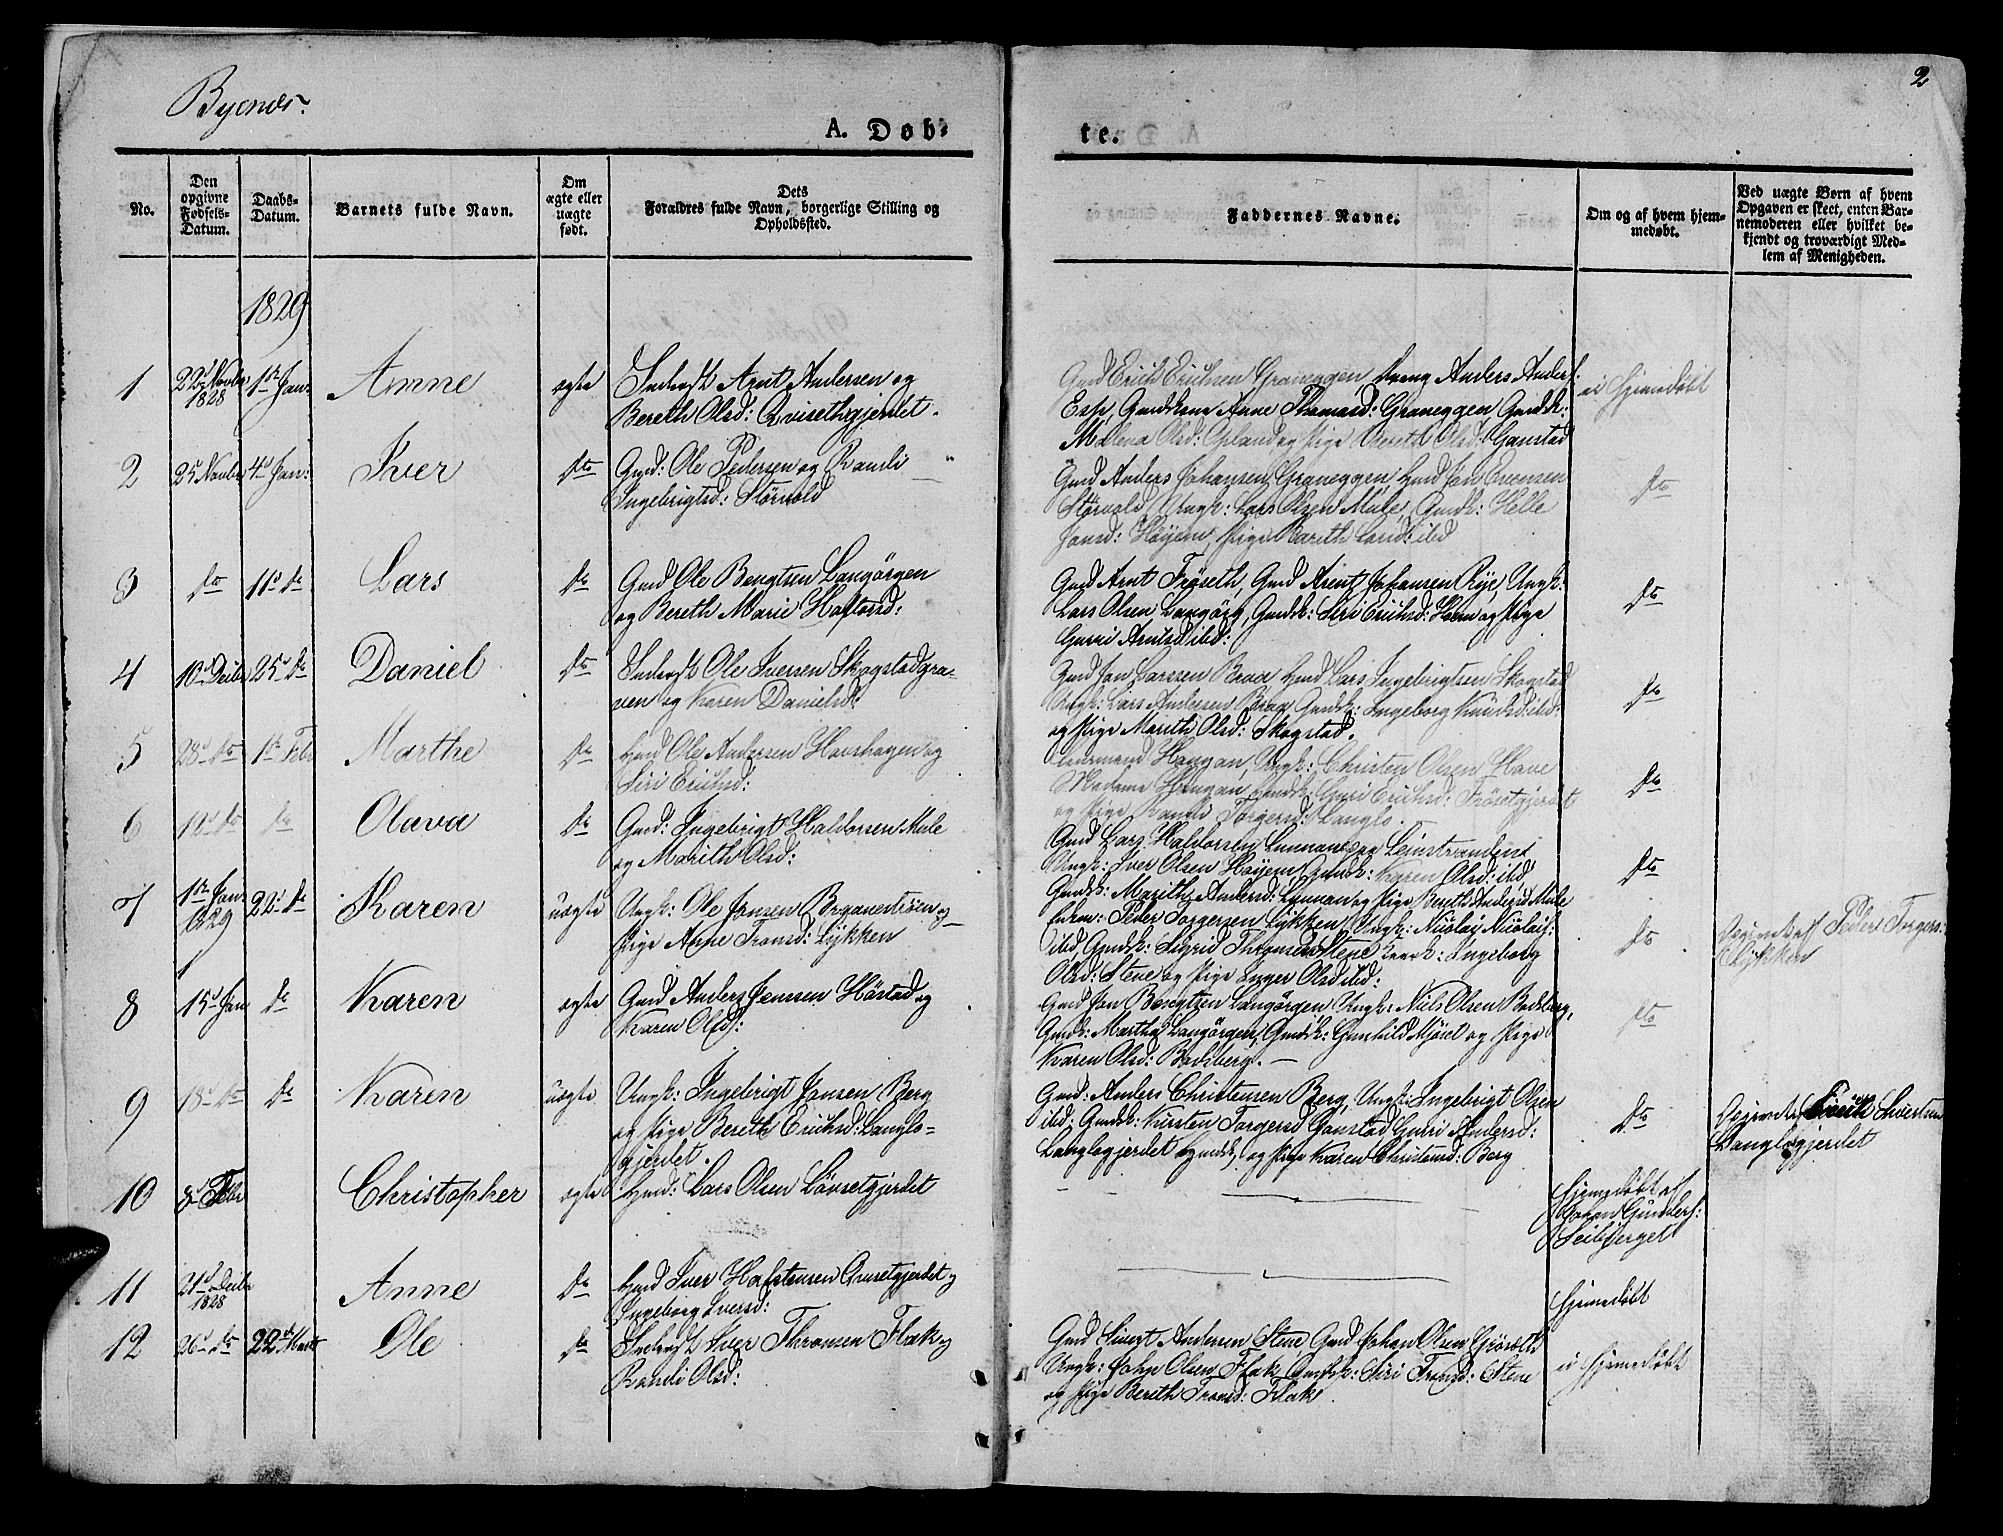 2
Byenes.
A. Døb-
te.
No.
Den opgivne Fødsels-Datum.
Daabs-Datum.
Barnets fulde Navn.
Om ægte eller uægte født.
Dets Forældres fulde Navn, borgerlige Stilling og Opholdssted.
Faddernes Navne.
Om og af hvem hjem-medøbt.
Ved uægte Børn af hvem Opgaven er skeet, enten Bar-nemoderen eller hvilket be-kjendt og troværdigt Med-lem af Menigheden.
1829
1 22d Novbr 1828 1ste Jan: Anne ægte Inderst Arnt Andersen og
Bereth Olsd: Qvisethgjerdet.
Gmd Erich Erichsen Graneggen, Dreng Anders Anders:
Esp, Gmdkone Anne Thomasd: Graneggen Gmdk:
Malena Olsd: Opland og Pige Bereth Olsd: Ganstad
ei Hjemedøbt
2 25 Novbr 4d Jan: Iver dto Gmd: Ole Pedersen og Randi
Ingebrigtsd: Størvold
Gmd Anders Johansen Graneggen, Hmd Jon
Størvold Ungk: Lars Olsen Mule, Gmdk: Helle
Jonsd: Høyem, Pige Marith Larsd: ibid
dto
3 do 11d do Lars do Gmd Ole Bengtsen Langørgen
og Bereth Marie Haftorsd:
Gmd Arnt Frøseth, Gmd Arent Johansen Rye, Ungk:
Lars Olsen Langørg, Gmdsk: Siri Erichsd: Hoem og Pige
Gurri Arntsd ibid:
dto
4 10d Decbr 25d do Daniel do Inderst Ole Iversen Skogstadgra-
ven og Karen Danielsd:
Gmd Jon Larssen Braa Hmd Lars Ingebrigtsen Skogstad
Ungk: Lars Andersen Braa Gmdk: Ingeborg ibid:
og Pige Marith Olsd: Skogstad.
do
5 28d do 1ste Febr Marthe do Hmd Ole Andersen Havshagen og
Siri Erichsd:
Haugan, Ungk: Christen Olsen Have
Madame Haugan, Gmdk: Guri Erichsd: Frøsetgjerdet
og Pige Randi Torgersd: Langlo.
do
6 12d do do Olava do Gmd: Ingebrigt Haldorsen Mule
og Marith Olsd:
Gmd Lars Haldorsen Lunnan Leinstrandens
Ungk: Iver Olsen Høyem, Gmdk: Karen Olsd: ibid,
Gmdk: Marith Andersd: Lunnan og Pige Bereth Andersd Mule
dto
7 1ste Jan: 1829 22d do Karen uægte Ungk: Ole Jonsen og
Pige Anne Tronsd: Lykken
Peder Torgersen Lykken, Ungk: Nicolay Nicolais:
ibid, Gmdk: Sigrid Thronsd: Stene, Ingeborg
Olsd: Stene og Pige Inger Olsd ibid:
dto
Opgivet af Peder Torgers:
Lykken
8 15d Jan do Karen ægte Gmd Anders Jenssen Høstad og
Karen Olsd:
Gmd Jon Bengtsen Langørgen, Ungk: Niels Olsen Bodsberg,
Gmdk: Martha Langørgen, Gmdk: Gunhild Mjøset og Pige
Karen Olsd: Bodsberg.
dto
9 18d do do Karen uægte Ungk: Ingebrigt Jonsen Berg
og Pige Bereth Erichsd: Langlo-
gjerdet.
Gmd: Anders Christensen Berg, Ungk: Ingebrigt Olsen
ibid: Gmdk: Kirsten Torgersd Ganstad Gurri Andersd:
Langlogjerdet Hmdk, og Pige Karen Christensd: Berg
dto
Opgivet af Erich
Langlogjerdet
10 8d Febr Christopher ægte Hmd: Lars Olsen Løvsetgjerdet
Hjemedøbt af
Johan Gunders:
11 21d Decbr 1828 Anne do Hmd Iver Hafstensen Qvisetgjerdet og
Ingeborg Iversd:
Hjemedøbt
12 26d do 22d Marts Ole do Inderst Iver Thronsen Flak og
Randi Olsd:
Gmd Sivert Andersen Stene, Gmd Johan Olsen Grøseth
Ungk: John Olsen Flak Gmdsk: Siri Tronsd: Stene
og Pige Bereth Tronsd: Flak.
ei Hjemedøbt